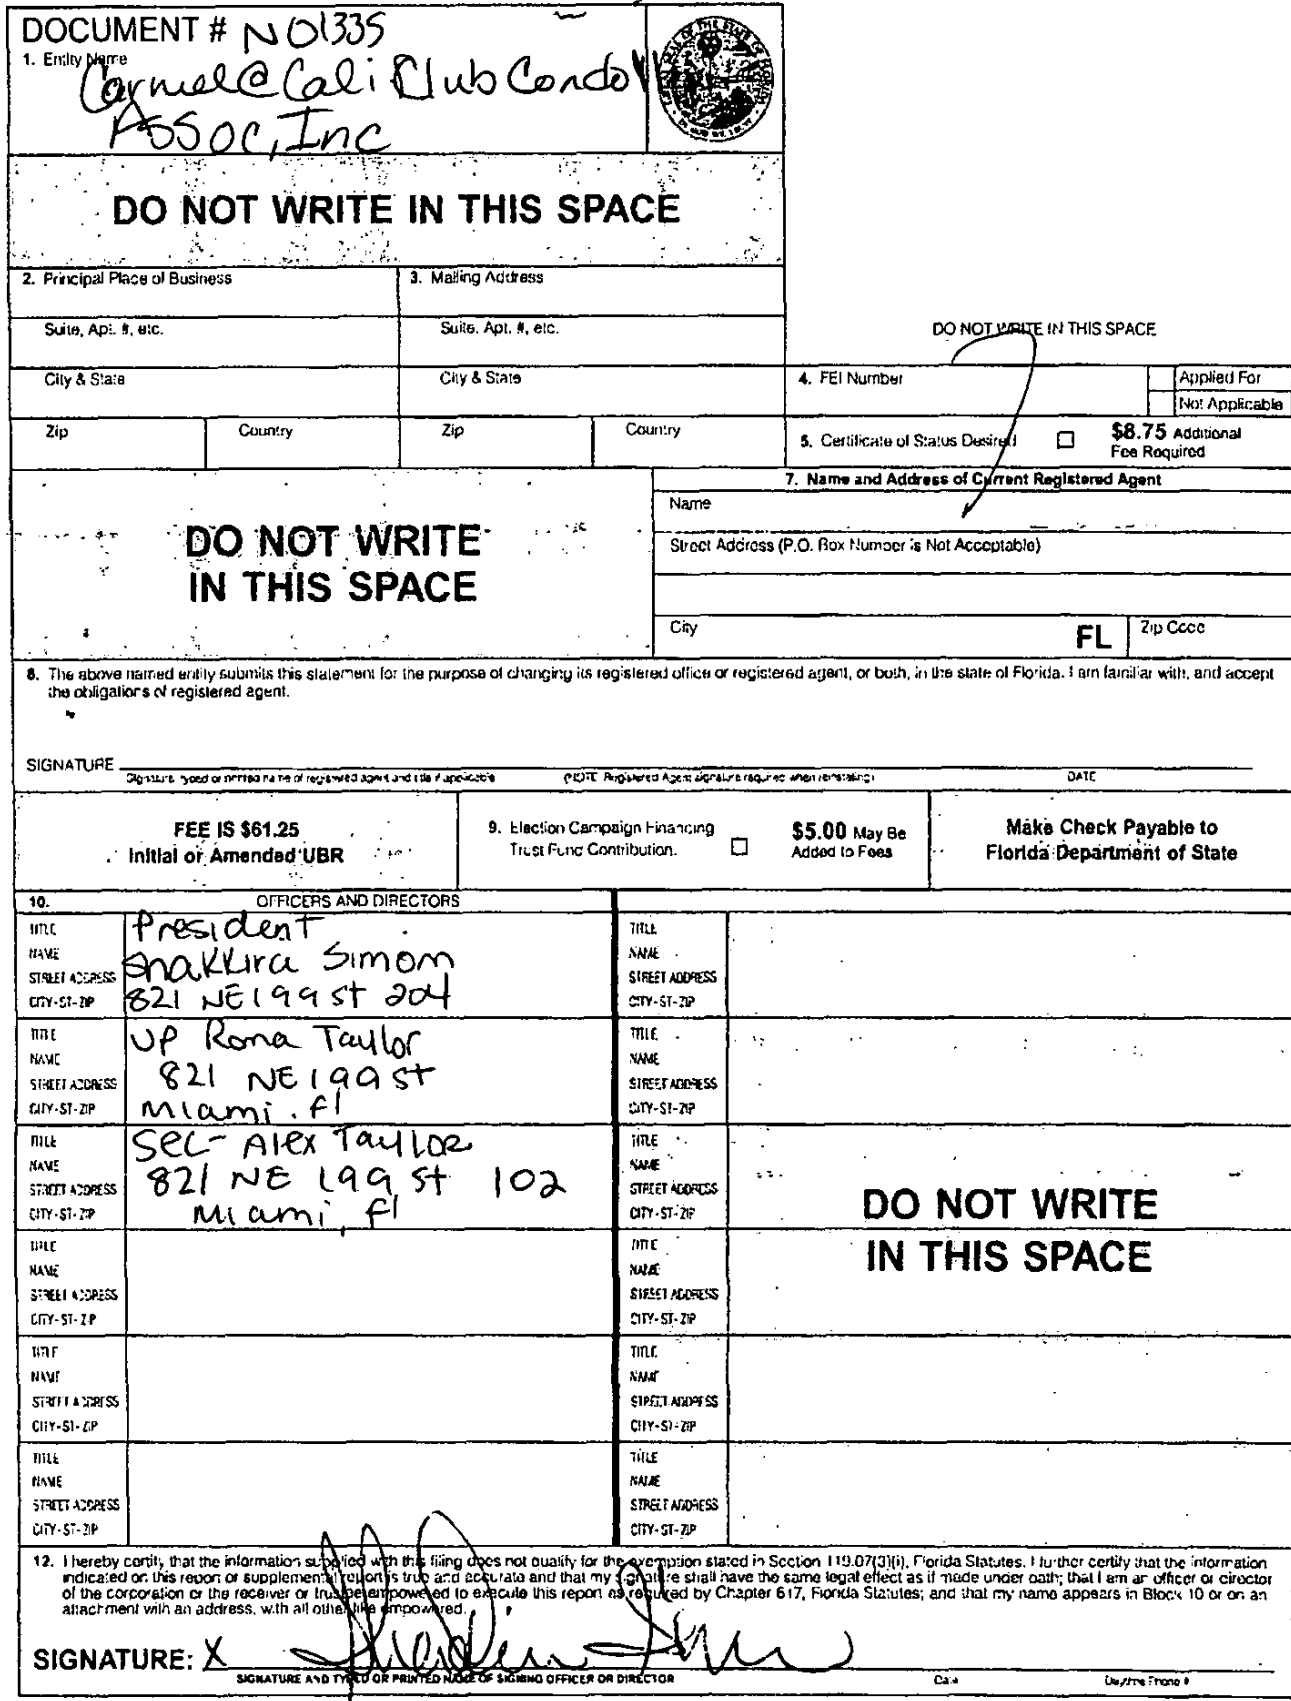 DOCUMENT # N01335
1. Entity Name
Carmel @ Cali Club Condo VI
Assoc, Inc
DO NOT WRITE IN THIS SPACE
2. Principal Place of Business
3. Mailing Address
Suite, Apt. #, etc.
Suite, Apt. #, etc.
DO NOT WRITE IN THIS SPACE
City & State
City & State
4. FEI Number
Applied For
Not Applicable
Zip
Country
Zip
Country
5. Certificate of Status Desired
$8.75 Additional
Fee Required
DO NOT WRITE
IN THIS SPACE
7. Name and Address of Current Registered Agent
Name
Street Address (P.O. Box Number is Not Acceptable)
City
FL
Zip Code
8. The above named entity submits this statement for the purpose of changing its registered office or registered agent, or both, in the state of Florida. I am familiar with, and accept
the obligations of registered agent.
SIGNATURE
Signature, typed or printed name of registered agent and title if applicable
(NOTE: Registered Agent signature required when reinstating)
DATE
FEE IS $61.25
Initial or Amended UBR
9. Election Campaign Financing
Trust Fund Contribution.
$5.00 May Be
Added to Fees
Make Check Payable to
Florida Department of State
10. OFFICERS AND DIRECTORS
TITLE President
NAME Shakkira Simom
STREET ADDRESS 821 NE 199 St 204
CITY-ST-ZIP
TITLE
NAME
STREET ADDRESS
CITY-ST-ZIP
TITLE VP Rona Taylor
NAME
STREET ADDRESS 821 NE 199 St
CITY-ST-ZIP Miami. Fl
TITLE
NAME
STREET ADDRESS
CITY-ST-ZIP
TITLE Sec- Alex Taylor
NAME
STREET ADDRESS 821 NE 199 St 102
CITY-ST-ZIP Miami, Fl
TITLE
NAME
STREET ADDRESS
CITY-ST-ZIP
DO NOT WRITE
IN THIS SPACE
TITLE
NAME
STREET ADDRESS
CITY-ST-ZIP
TITLE
NAME
STREET ADDRESS
CITY-ST-ZIP
TITLE
NAME
STREET ADDRESS
CITY-ST-ZIP
TITLE
NAME
STREET ADDRESS
CITY-ST-ZIP
TITLE
NAME
STREET ADDRESS
CITY-ST-ZIP
TITLE
NAME
STREET ADDRESS
CITY-ST-ZIP
12. I hereby certify that the information supplied with this filing does not qualify for the exemption stated in Section 119.07(3)(i), Florida Statutes. I further certify that the information
indicated on this report or supplemental report is true and accurate and that my signature shall have the same legal effect as if made under oath; that I am an officer or director
of the corporation or the receiver or trustee empowered to execute this report as required by Chapter 617, Florida Statutes; and that my name appears in Block 10 or on an
attachment with an address, with all other like empowered.
SIGNATURE: X
SIGNATURE AND TYPED OR PRINTED NAME OF SIGNING OFFICER OR DIRECTOR
Date
Daytime Phone #